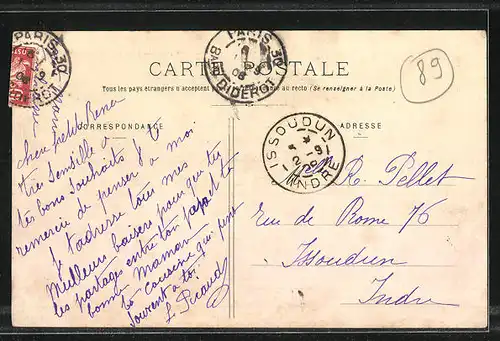 PARIS 30
DIDEROT
PARIS 30
DIDEROT
CARTE POSTALE
Tous les pays étrangers n'acceptent au recto (Se renseigner à la Poste)
89
CORRESPONDANCE
ADRESSE
ISSOUDUN
2 - 9
INDRE
cher petit René
très sensible à
tes bons souhaits je te
remercie de penser à moi
Je t'adresse tous mes
Meilleurs baisers pour que tu
les partages entre ton papa et ta
bonne Maman
ta cousine qui pense
souvent à toi
L. Picaud
R. Pellet
rue de Rome 76
Issoudun
Indre